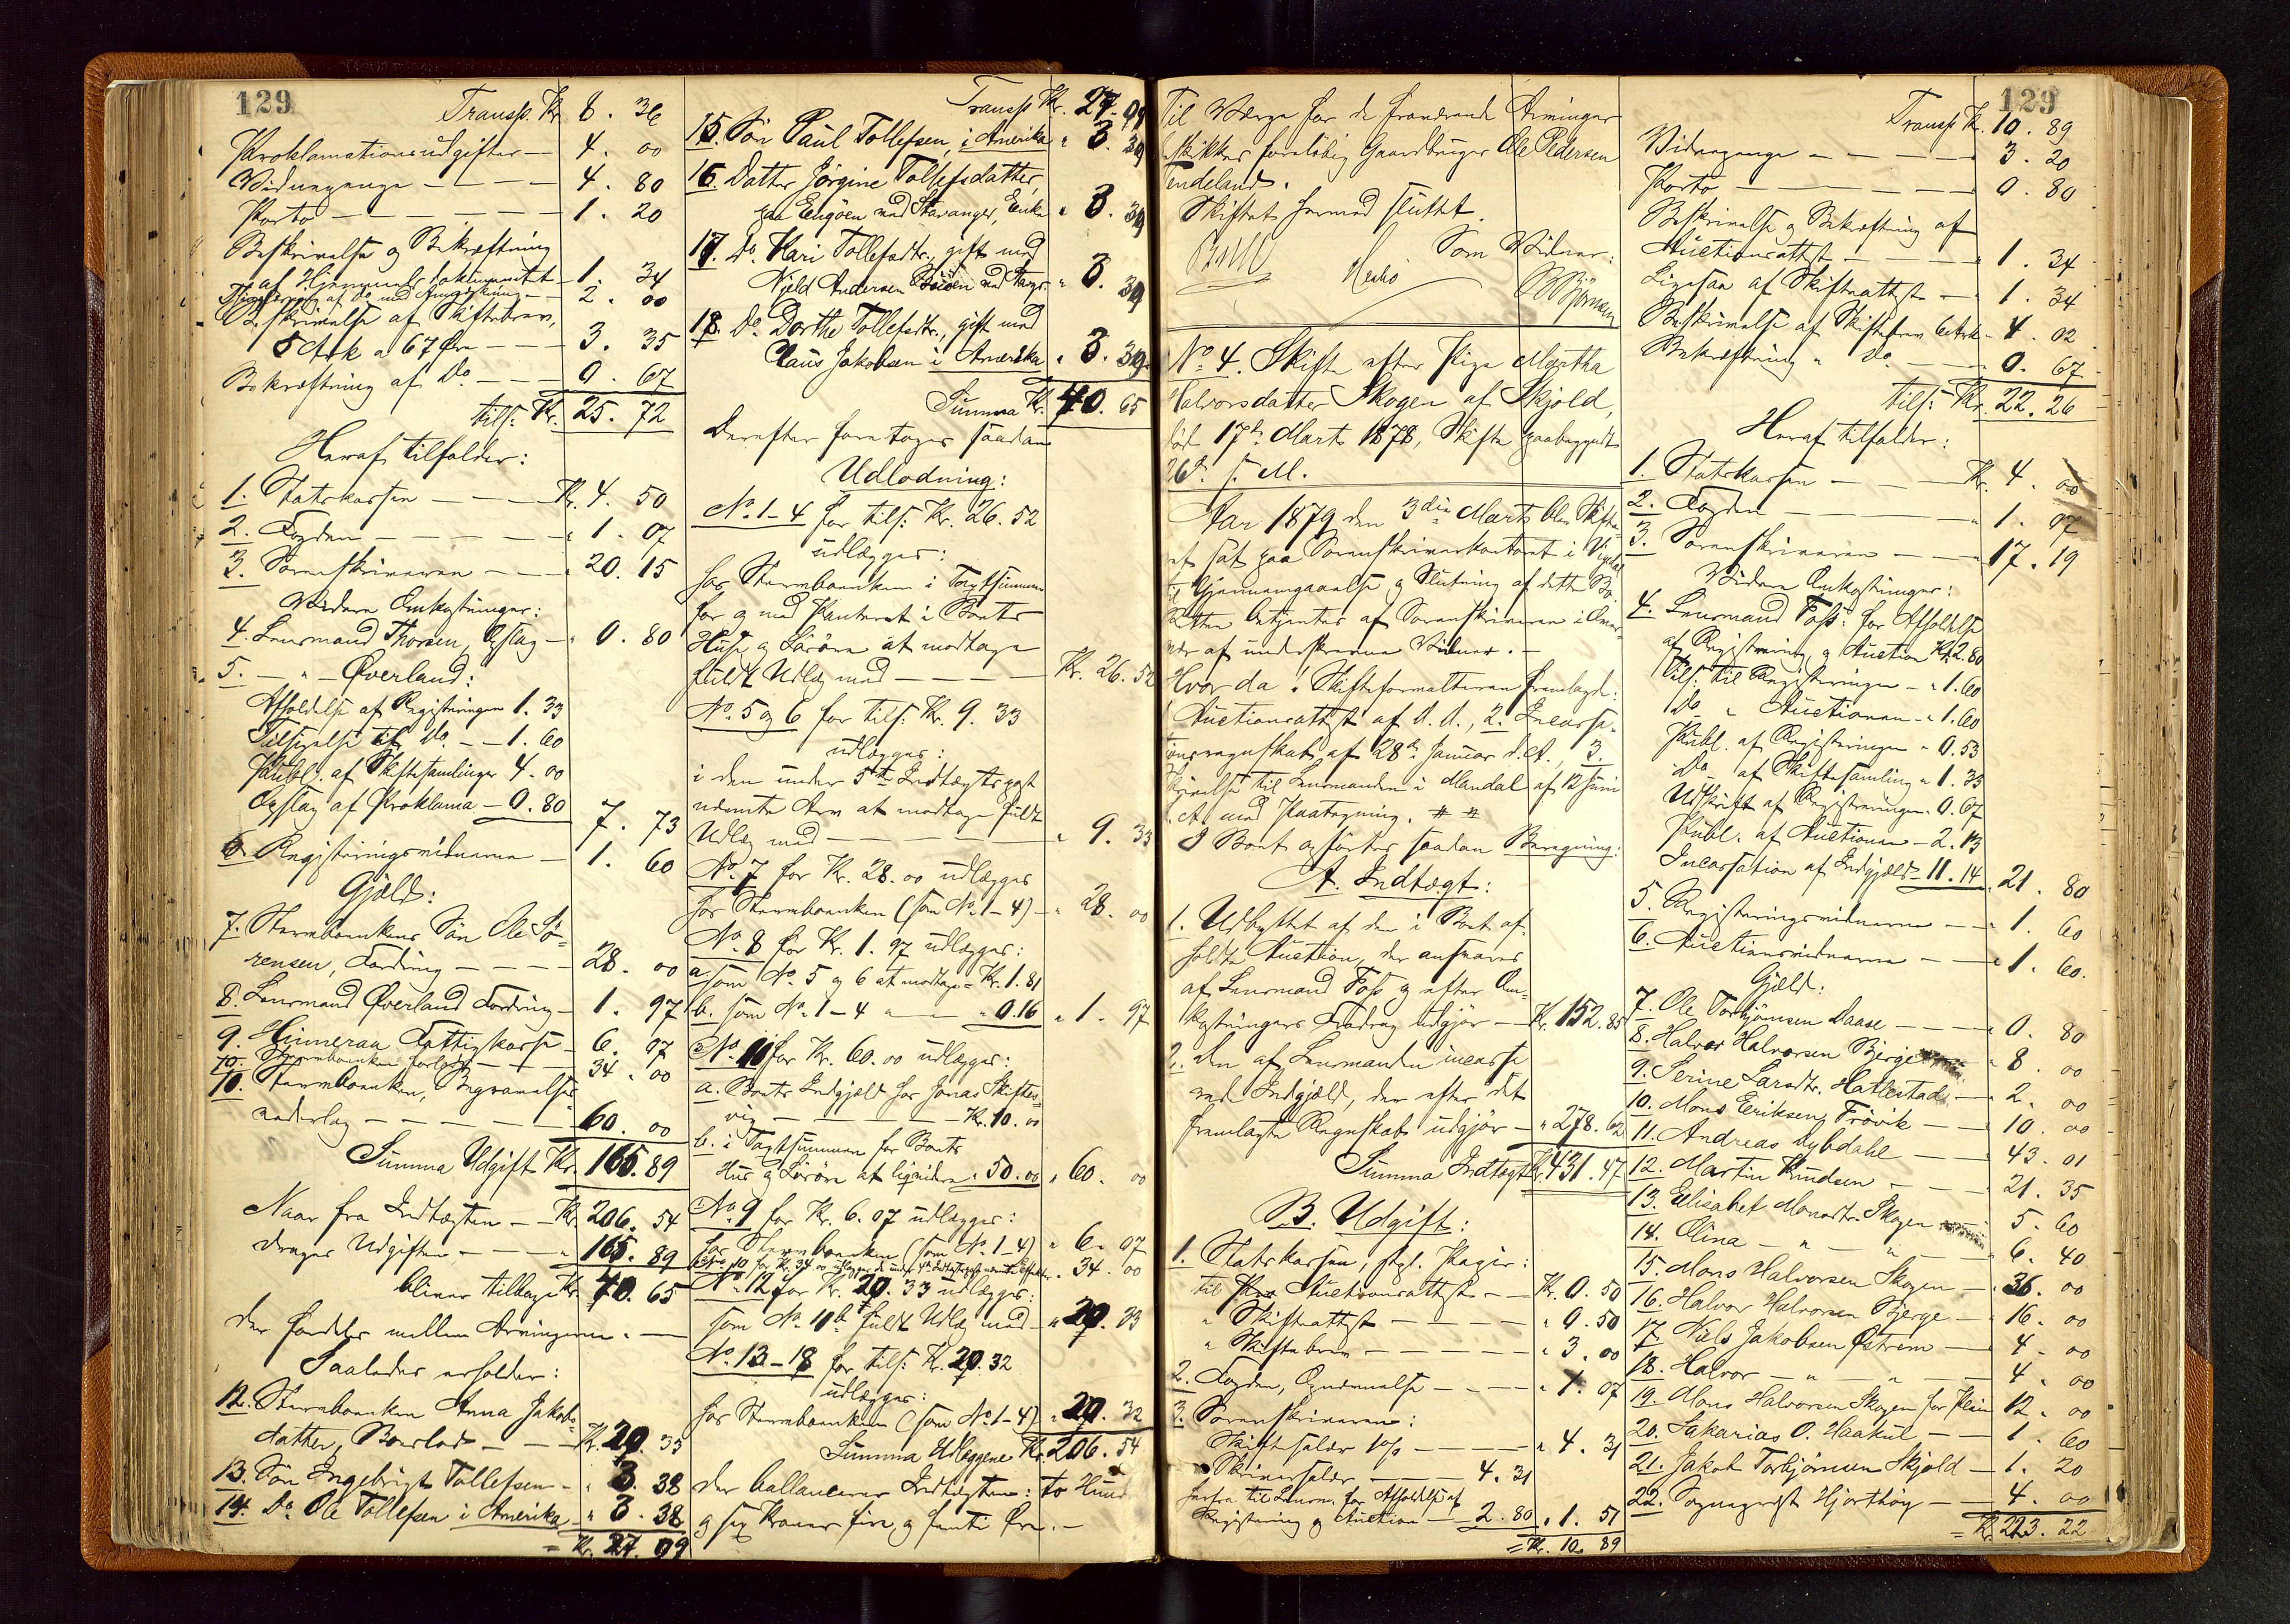 129
Transp. Kr. 8. 36
Proklamationsudgifter — 4. 00
Vidnegange — — — — 4. 80
Porto — — — — — 1. 20
Beskrivelse og Bekræftning
af Hjemmelsdokumentet — 1. 34
af Do med — 2. 00
Beskrivelse af Skiftebrev,
5 Ark a 67 Øre — — 3. 35
Bekræftning af Do — — 0. 67
tils. Kr. 25. 72
Heraf tilfalder:
1. Statskassen — — — Kr. 4. 50
2. Fogden — — — — — " 1. 07
3. Sorenskriveren — — " 20. 15
Videre Omkostninger:
4. Lensmand Thorsen, Opslag — " 0. 80
5. — " — Øverland:
Afholdelse af Registreringen 1. 33
Tilsigelse til Do. — — 1. 60
Publ. af Skiftesamlinger 4. 00
Opslag af Proklama — 0. 80
7. 73
6. Registreringsvidnerne — 1. 60
Gjæld:
7. Stervboenkens Søn Ole Sø-
rensen, Fordring — — — 28. 00
8. Lensmand Øverland Fordring — 1. 97
9. Hinneraa Fattigkasse — 6. 07
10. Stervboenken forlods — — 34. 00
10. Stervboenken, Begravelses-
vederlag — — — — — 60. 00
Summa Udgift Kr. 165. 89
Naar fra Indtægten — — Kr. 206. 54
drages Udgiften — — — " 165. 89
bliver tilbage Kr. 40. 65
der fordeles mellem Arvingerne. —
Saaledes erholder:
12. Stervboenken Anna Jakobs-
datter, Boeslod — — Kr. 20. 33
13. Søn Ingebrigt Tollefsen — " 3. 38
14. Do. Ole Tollefsen i Amerika — " 3. 38
= Kr. 27. 09
Transp. Kr. 27. 09
15. Søn Paul Tollefsen, i Amerika " 3. 39
16. Datter Jørgine Tollefsdatter,
paa Engøen ved Stavanger, Enke " 3. 39
17. Do. Kari Tollefsdtr., gift med
Njeld Andersen ved " 3. 39
18. Do. Dorthe Tollefsdtr., gift med
Claus Jakobsen i Amerika " 3. 39
Summa Kr. 40. 65
Derefter foretoges saadan
Udlodning:
No. 1-4 for tils. Kr. 26. 52
udlægges:
hos Stervboenken i Taxtsummen
for og med Panteret i Boets
Huse og Løsøre at modtage
fuldt Udlæg med — — — — Kr. 26. 52
No. 5 og 6 for tils. Kr. 9. 33
udlægges:
i den under 5te Indtægtspost
nævnte Arv at modtage fuldt
Udlæg med — — — — " 9. 33
No. 7 for Kr. 28. 00 udlægges
hos Stervboenken (som No. 1-4) — " 28. 00
No. 8 for Kr. 1. 97 udlægges:
a. som No. 5 og 6 at modtage — Kr. 1. 81
b. som No. 1-4 " — " 0.16 " 1. 97
No. 11 for Kr. 60. 00 udlægges:
a. Boets Indgjæld hos Jonas Skiftes-
vig — — — — — Kr. 10. 00
b. i Taxtsummen for Boets
Hus og Løsøre at liqvidere " 50. 00 " 60. 00
No. 9 for Kr. 6. 07 udlægges:
hos Stervboenken (som No. 1-4) " 6. 07
No. 10 for Kr. 34 00 udlægges de under 4de Indtægtspost nævnte Effekter " 34. 00
No. 12 for Kr. 20. 33 udlægges:
som No. 11 b fuldt Udlæg med — " 20. 33
No. 13-18 for tils. Kr. 20. 32
udlægges:
hos Stervboenken (som No. 1-4) " 20. 32
Summa Udlæggene Kr. 206. 54
der ballancerer Indtægten: to Hund
og sex Kroner fire og femti Øre. —
Til Værge for de fraværende Arvinger
beskikkes foreløbig Gaardbruger Ole Pedersen
Tendeland.
Skiftet hermed sluttet.
Som Vidner:
No. 4. Skifte efter Pige Martha
Halvorsdatter Skogen af Skjold,
død 17de Marts 1878, Skifte paabegyndt
26de s. M.
Aar 1879 den 3die Marts blev Skifte-
ret sat paa Sorenskriverkontoret i
til Gjennemgaaelse og Slutning af dette Bo.
Retten betjentes af Sorenskriveren i Over-
vær af underskrevne Vidner. —
Hvorda: Skifteforvalteren fremlagde:
1. Auctionsattest af d. D., 2. Incassa-
tionsregnskab af 28de Januar d. A., 3.
Skrivelse til Lensmanden i Mandal af 12 Juni
f. A. med Paategning. # #
I Boet opførtes saadan Beregning:
A. Indtægt:
1. Udbyttet af den i Boet af-
holdte Auction, der ansvares
af Lensmand Foss og efter Om-
kostningers Fradrag udgjør — Kr. 152. 85
2. den af Lensmanden incasse-
rede Indgjæld, der efter det
fremlagte Regnskab udgjør — " 278. 62
Summa Indtægt Kr. 431. 47
B. Udgift:
1. Statskassen, stpl. Papir:
til Auctionsattest — — Kr. 0. 50
" Skifteattest — — — — " 0. 50
" Skiftebrev — — — — — " 3. 00
2. Fogden, Opnævnelse — — — " 1. 07
3. Sorenskriveren:
Skiftesalær 1% — — — — " 4. 31
Skriversalær — — — 4. 31
herfra til Lensm. for Afholdelse af
Registrering og Auction — 2. 80 " 1. 51
= Kr. 10. 89
129
Transp Kr. 10. 89
Vidnegange — — — — — " 3. 20
Porto — — — — — — " 0. 80
Beskrivelse og Bekræftning af
Auctionsattest — — — — " 1. 34
Ligesaa af Skifteattest — " 1. 34
Beskrivelse af Skiftebrev 6 Ark — 4. 02
Bekræftning " Do. — — — 0. 67
tils. Kr. 22. 26
Heraf tilfalder:
1. Statskassen — — — Kr. 4. 00
2. Fogden — — — — — " 1. 07
3. Sorenskriveren — — " 17. 19
Videre Omkostninger:
4. Lensmand Foss: for Afholdelse
af Registrering og Auction Kr. 2. 80
Tils. til Registreringen — " 1. 60
Do. " Auctionen — " 1. 60
Publ. af Registreringen " 0. 53
Do. af Skiftesamling " 1. 33
Udskrift af Registreringen " 0. 67
Publ. af Auctionen — 2. 13
Incassation af Indgjæld — 11. 14 " 21. 80
5. Registreringsvidnerne — — " 1. 60
6. Auctionsvidnerne — — " 1. 60.
Gjæld:
7. Ole Torbjørnsen Daase — — — " 0. 80
8. Halvor Halvorsen Bjerge " 8. 00
9. Serine Larsdtr. Hatlestad — 2. 00
10. Mons Eriksen Frövik — — 10. 00
11. Andreas Dybdahl — — 43. 01
12. Martin Knudsen — — 21. 35
13. Elisabet Monsdtr. Skogen 5. 60
14. Olina — " — " — 6. 40
15. Mons Halvorsen Skogen — " 36. 00
16. Halvor Halvorsen Bjerge — " 16. 00
17 Niels Jakobsen Østrem — 4. 00
18. Halvor — " — " — 4. 00
19. Mons Halvorsen Skogen for Pleie 12. 00
20. Sakarias O. Haakul — — 1. 60
21. Jakob Torbjørnsen Skjold — 1. 20
22. Sogneprest Hjorthøy — — 4. 00
= Kr. 223. 22